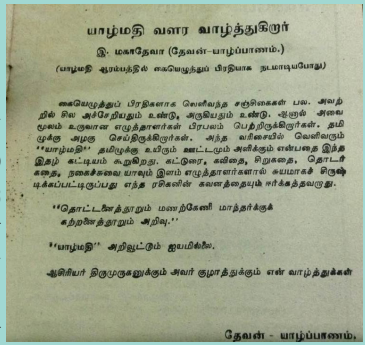 யாழ்மதி வளர வாழ்த்துகிறார்
இ. மகாதேவா (தேவன்-யாழ்ப்பாணம்.)
(யாழ்மதி ஆரம்பத்தில் கையெழுத்துப் பிரதியாக நடமாடியபோது)
கையெழுத்துப் பிரதிகளாக வெளிவந்த சஞ்சிகைகள் பல. அவற்
றில் சில அச்சேறியதும் உண்டு, அருகியதும் உண்டு. ஆனால் அவை
மூலம் உருவான எழுத்தாளர்கள் பிரபலம் பெற்றிருக்கிறார்கள். தமி
முக்கு அழகு செய்திருக்கிறார்கள். அந்த வரிசையில் வெளிவரும்
"யாழ்மதி" தமிழுக்கு உயிரும் ஊட்டமும் அளிக்கும் என்பதை இந்த
இதழ் கட்டியம் கூறுகிறது. கட்டுரை, கவிதை, சிறுகதை, தொடர்
கதை, நகைச்சுவை யாவும் இளம் எழுத்தாளர்களால் சுயமாகச் சிருஷ்
டிக்கப்பட்டிருப்பது எந்த ரசிகனின் கவனத்தையும் ஈர்க்கத்தவறாது.
"தொட்டனைத்தூறும் மணற்கேணி மாந்தர்க்குக்
கற்றனைத்தூறும் அறிவு."
"யாழ்மதி" அறிவூட்டும் ஐயமில்லை.
ஆசிரியர் திருமுருகனுக்கும் அவர் குழாத்துக்கும் என் வாழ்த்துக்கள்
தேவன் - யாழ்ப்பாணம்.